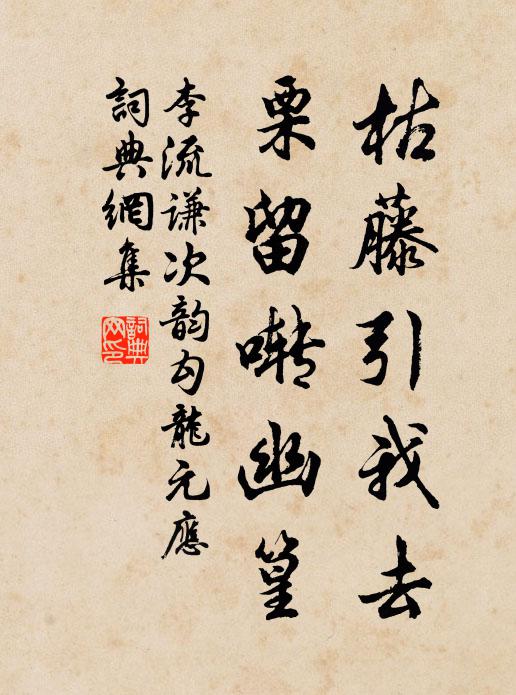 枯藤引我去
栗留啭幽篁
李流谦次韵勾龍元應
詞典網集
詞典网印